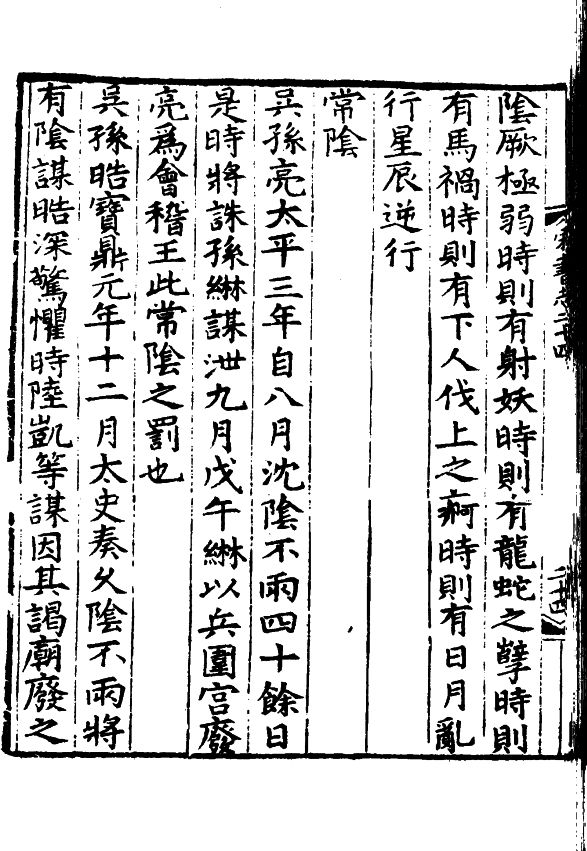 陰厥極弱時則有射妖時則有龍蛇之孽時則
有馬禍時則有下人伐上之痾時則有日月亂
行星辰逆行
常陰
吳孫亮太平三年自八月沈陰不雨四十餘日
是時將誅孫綝謀泄九月戊午綝以兵圍宮廢
亮爲會稽王此常陰之罰也
吳孫晧寶鼎元年十二月太史奏久陰不雨將
有陰謀晧深驚懼時陸凱等謀因其謁廟廢之